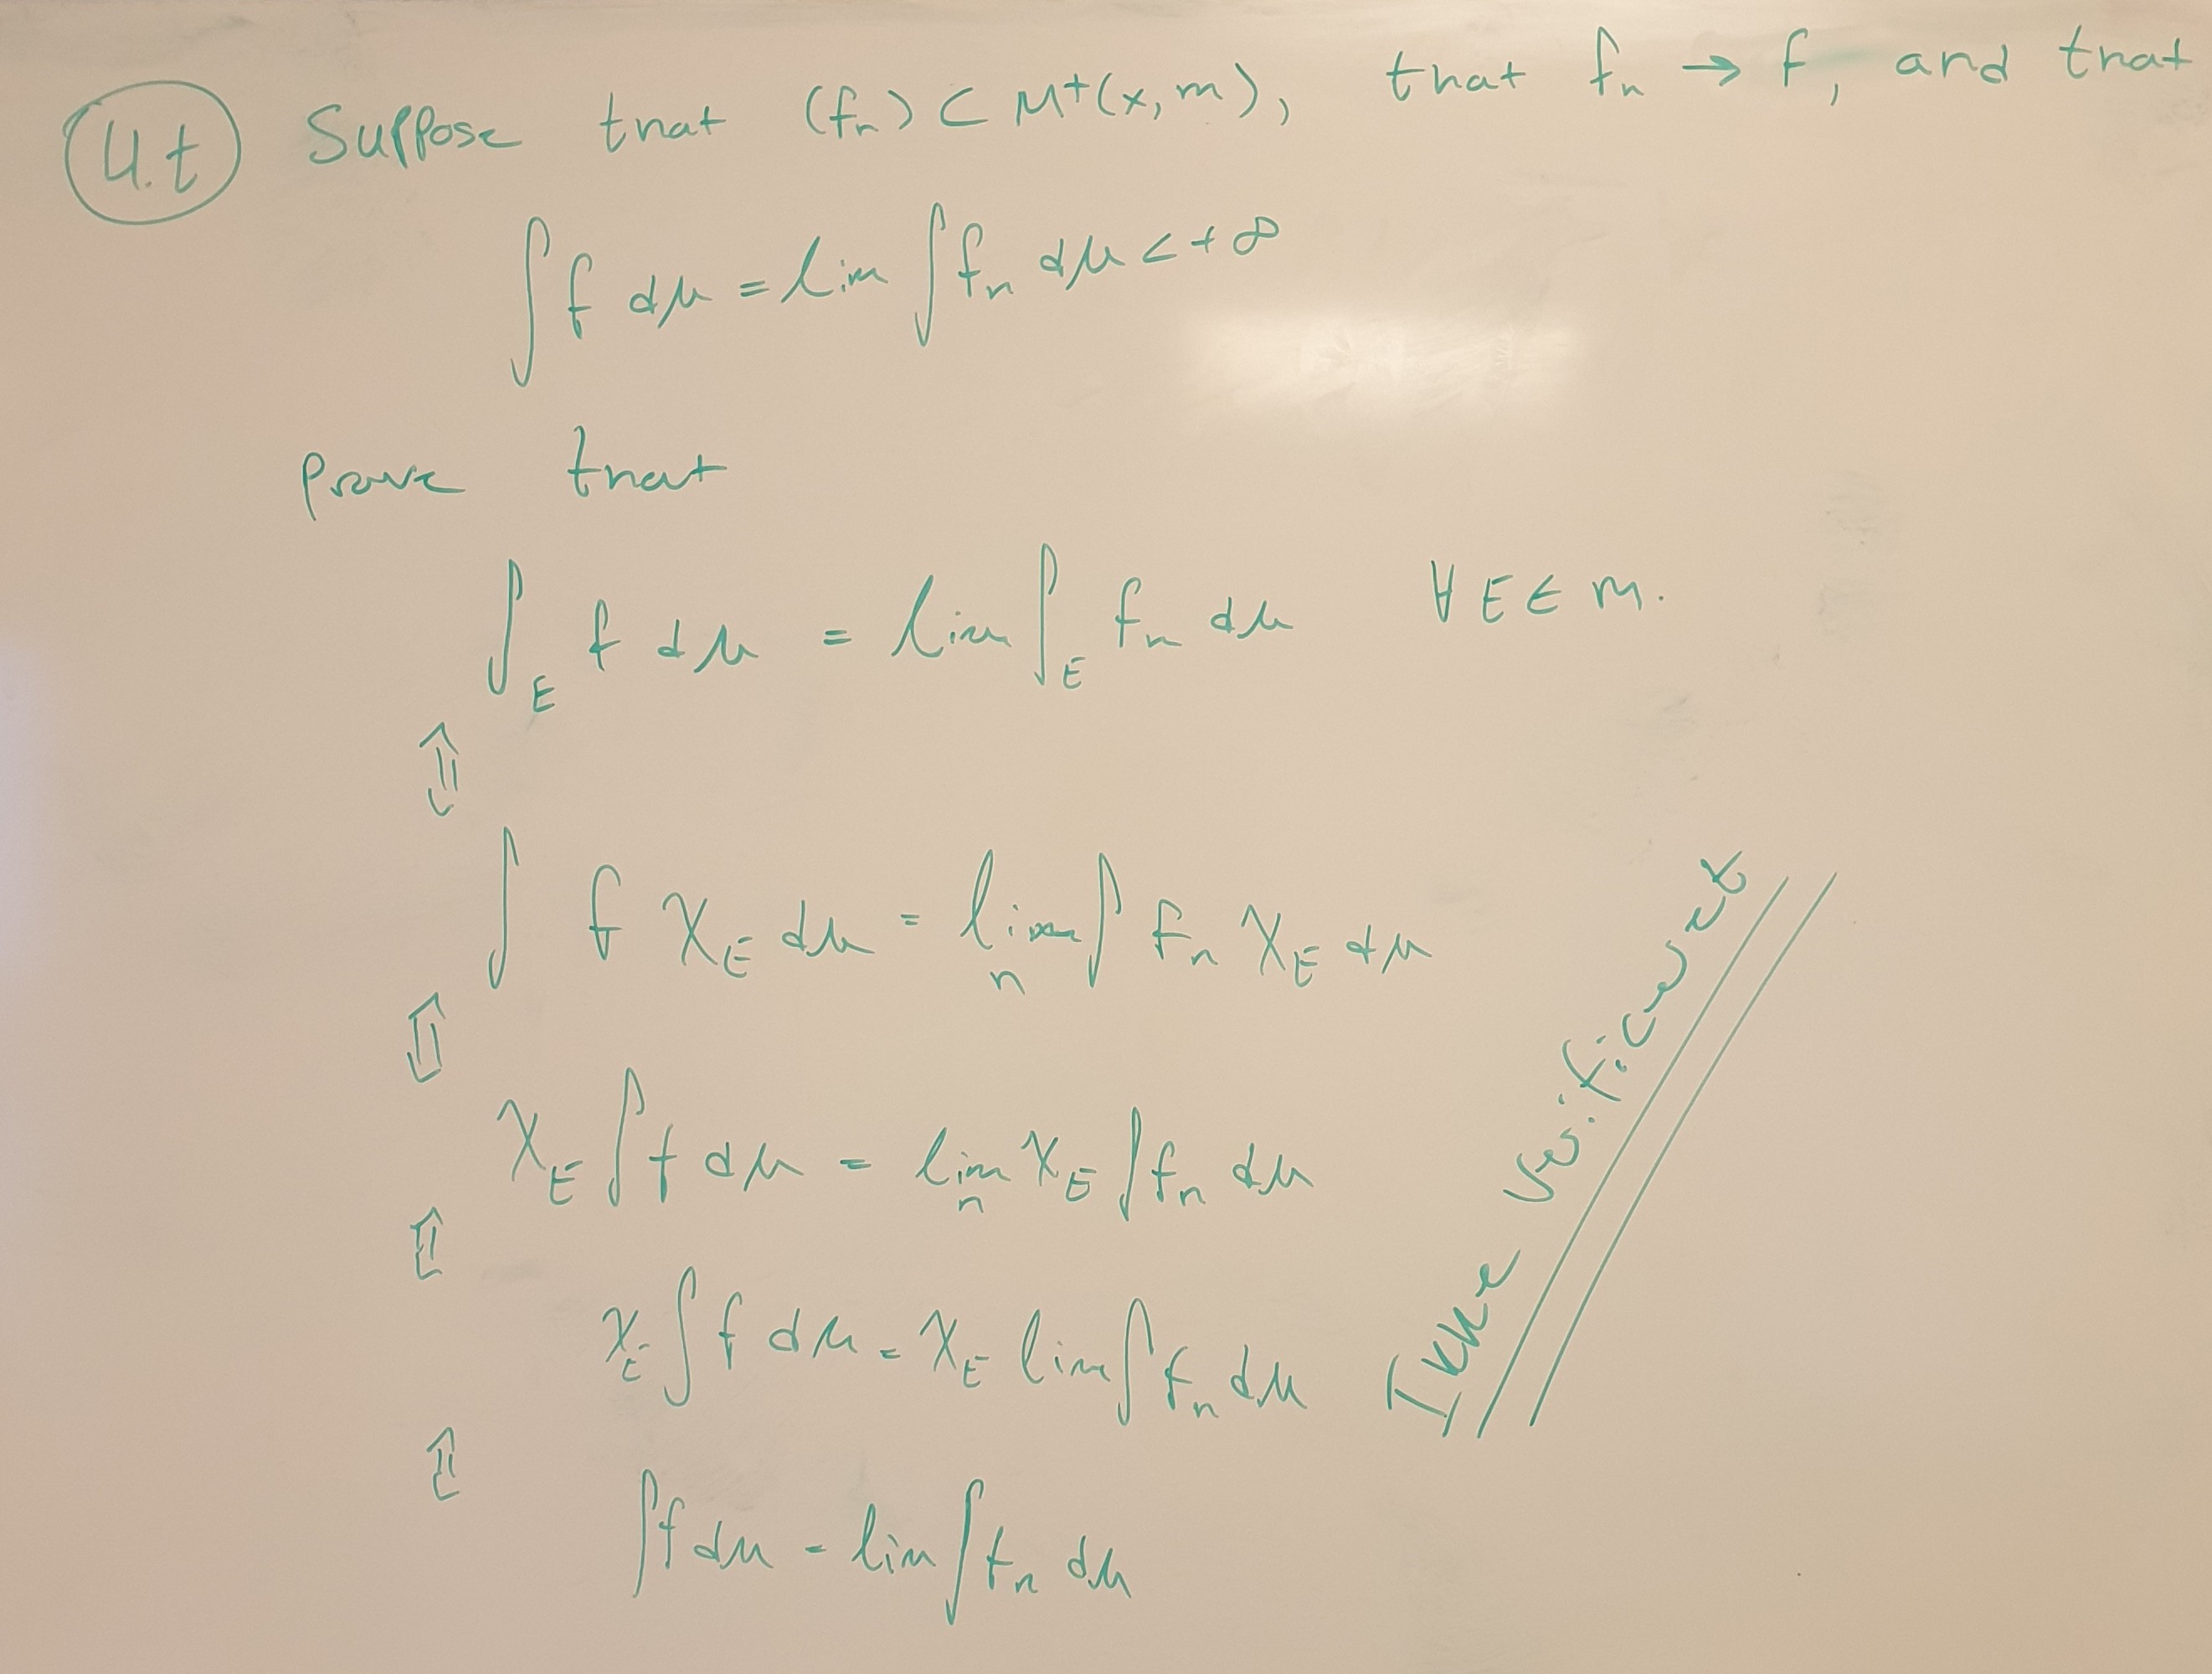 4.t Suppose that (fn) ⊂ M⁺(x, m), that fn → f, and that
∫ f dμ = lim ∫ fn dμ < +∞
Prove that
∫_E f dμ = lim ∫_E fn dμ ∀ E ∈ m.
⇕
∫ f χ_E dμ = lim_n ∫ fn χ_E dμ
⇕
χ_E ∫ f dμ = lim_n χ_E ∫ fn dμ
⇕
χ_E ∫ f dμ = χ_E lim ∫ fn dμ
⇕
∫ f dμ = lim ∫ fn dμ
Ikke verificeret